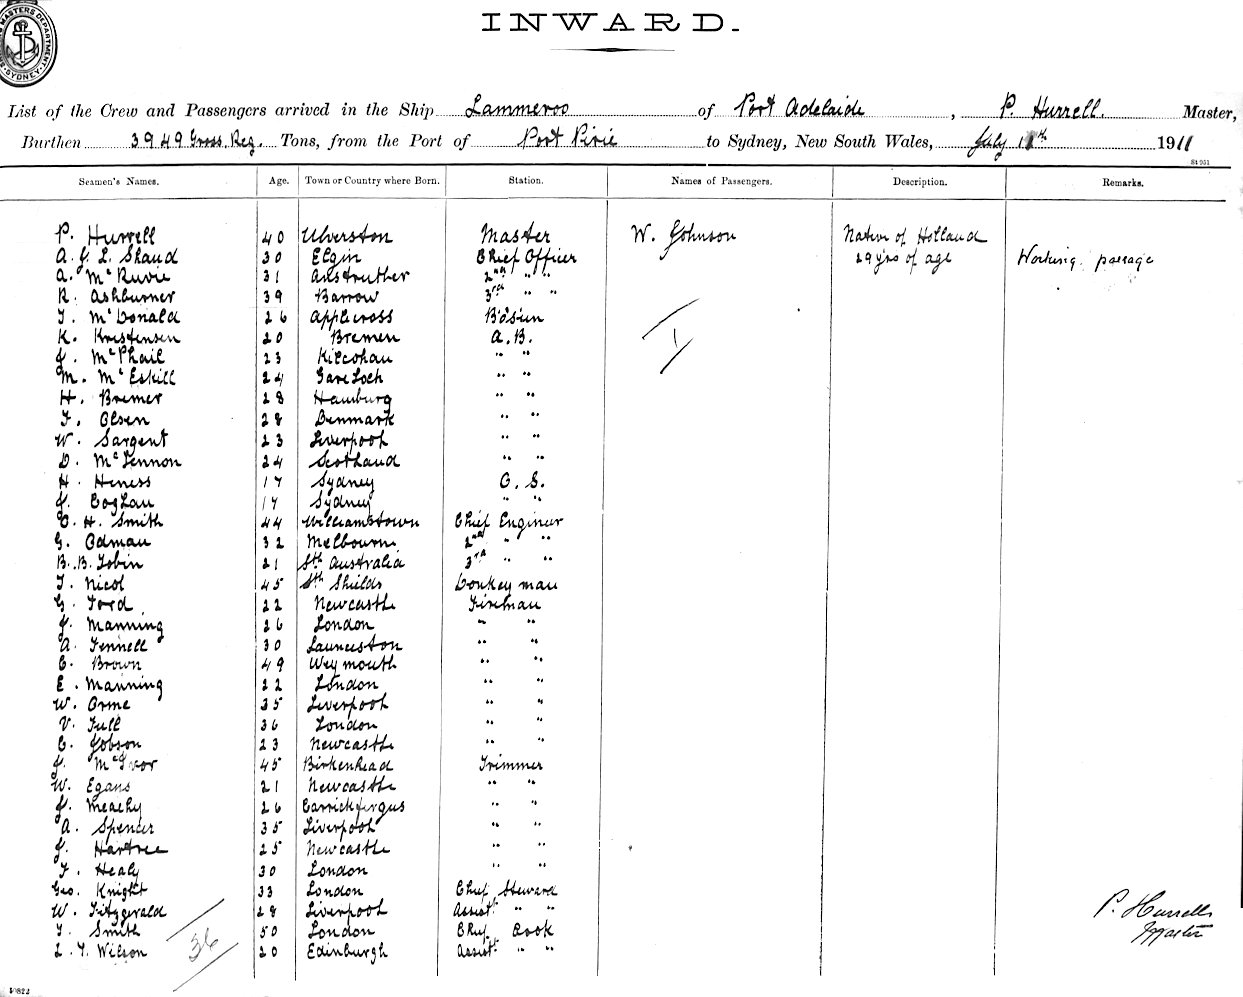 INWARD.
List of the Crew and Passengers arrived in the Ship Lammeroo of Port Adelaide, P. Hurrell. Master,
Burthen 3949 Gross. Reg. Tons, from the Port of Port Pirie to Sydney, New South Wales, July 11th 1911
Seamen's Names. Age. Town or Country where Born. Station. Names of Passengers. Description. Remarks.
P. Hurrell 40 Ulverston Master W. Johnson Native of Holland
A. J. L. Shand 30 Elgin Chief Officer 29 yrs of age Working passage
A. McRuvie 31 Anstruther 2nd " "
R. Ashburner 39 Barrow 3rd " "
T. McDonald 26 Applecross Bo'sun
K. Kristensen 20 Bremen A.B.
J. McPhail 23 " "
M. McEskill 24 Gare Loch " "
H. Bremer 28 Hamburg " "
T. Olsen 28 Denmark " "
W. Sargent 23 Liverpool " "
D. McLennon 24 Scotland " "
H. Heness 17 Sydney O. S.
J. Coghlan 17 Sydney " "
C. H. Smith 44 Williamstown Chief Engineer
G. Odman 32 Melbourne 2nd " "
B. B. Tobin 21 Sth Australia 3rd " "
T. Nicol 45 Sth Shields Donkeyman
G. Ford 22 Newcastle Fireman
J. Manning 26 London " "
A. Fennell 30 Launceston " "
C. Brown 49 Weymouth " "
E. Manning 22 London " "
W. Orme 35 Liverpool " "
V. Tull 36 London " "
C. Jobson 23 Newcastle " "
J. McIvor 45 Birkenhead Trimmer
W. Egans 21 Newcastle " "
J. Meachy 26 Carrickfergus " "
A. Spencer 35 Liverpool " "
J. Hartree 25 Newcastle " "
T. Healy 30 London " "
Geo. Knight 33 London Chief Steward
W. Fitzgerald 28 Liverpool Assist. " " P. Hurrell
T. Smith 50 London Chief Cook Master
L. T. Wilson 20 Edinburgh Assist. " "
36